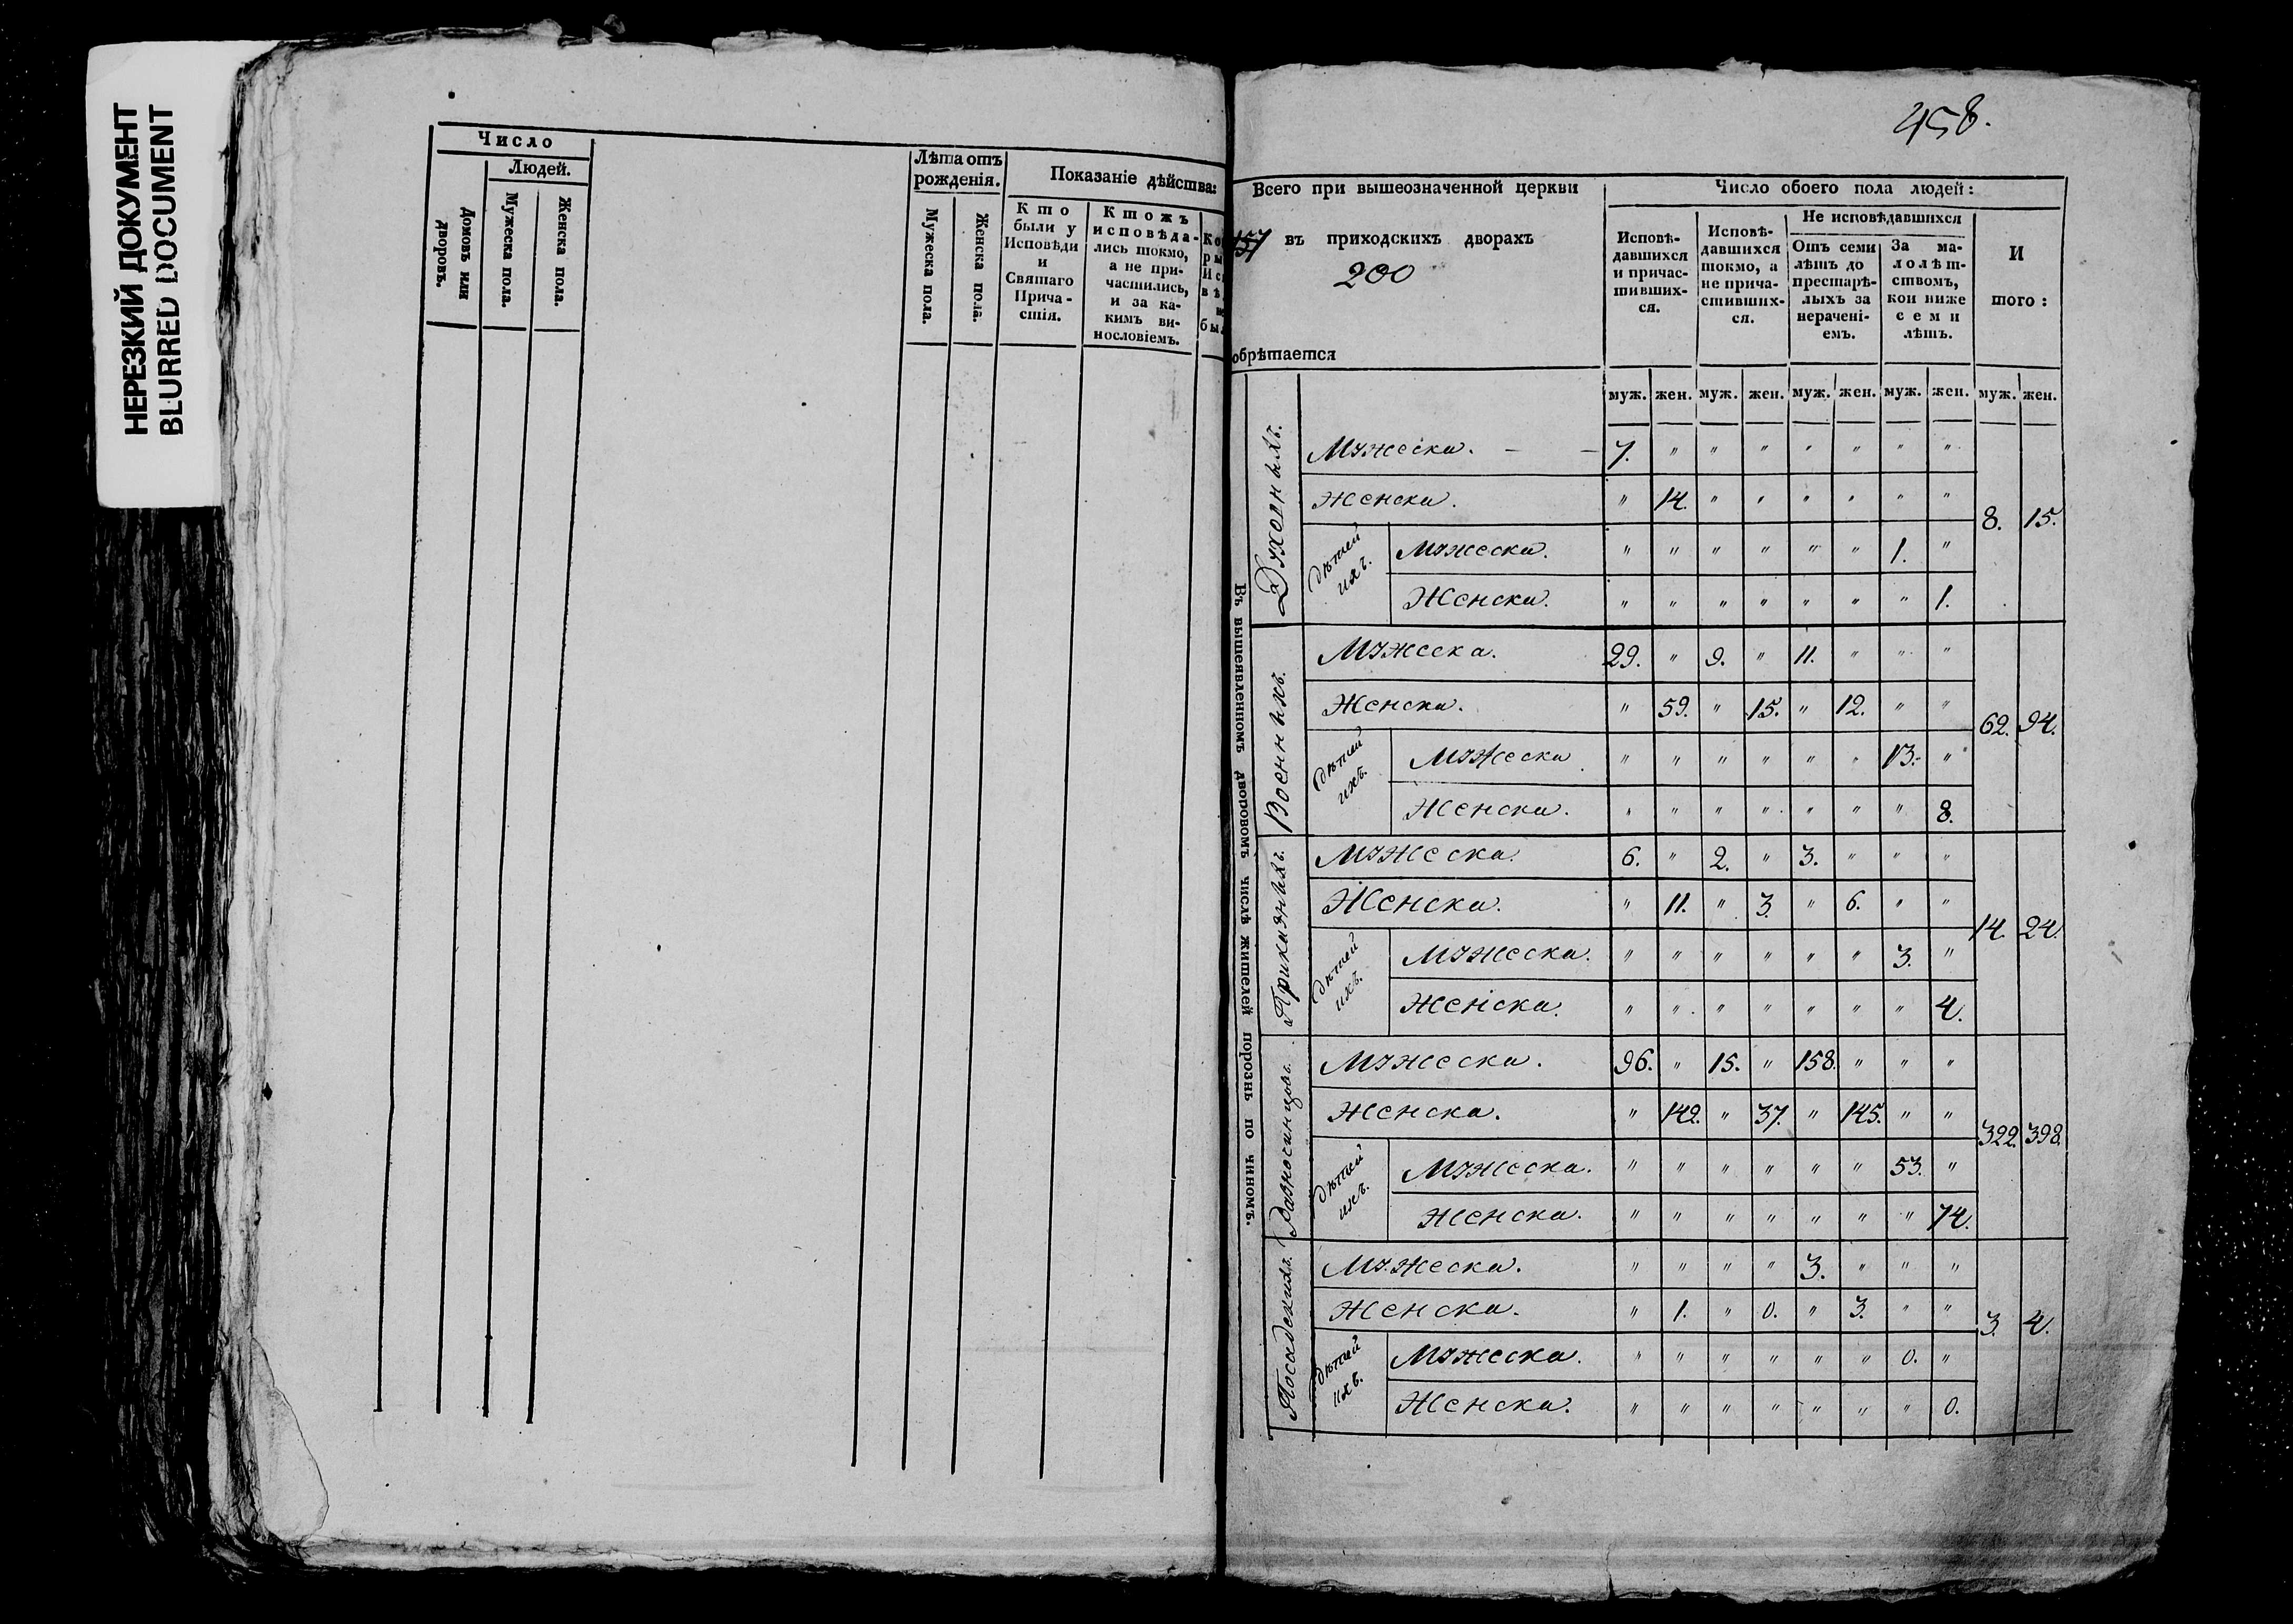 НЕРЕЗКИЙ ДОКУМЕНТ
BLURRED DOCUMENT
Число
Людей.
Домовъ или
дворовъ.
Мужеска пола.
Женска пола.
Лѣта отъ
рожденія.
Мужеска пола.
Женска пола.
Показаніе дѣйства:
Кто
были у
Исповѣди
и
Святаго
Прича-
стія.
Ктожъ
исповѣда-
лись токмо,
а не при-
частились,
и за ка-
кимъ ви-
нословіемъ.
458.
Всего при вышеозначенной церкви
въ приходскихъ дворахъ
200
обрѣтается
Число обоего пола людей:
Исповѣ-
давшихся
и причас-
тивших-
ся.
Исповѣ-
давшихся
токмо, а
не прича-
стивших-
ся.
Не исповѣдавшихся
Отъ семи
лѣтъ до
престарѣ-
лыхъ за
нерачені-
емъ.
За ма-
лолѣт-
ствомъ,
кои ниже
семи
лѣтъ.
И
того:
муж. жен. муж. жен. муж. жен. муж. жен. муж. жен.
Въ вышеявленномъ дворовомъ числѣ жителей порознь по чиномъ.
Духовныхъ.
Мужеска. — — 7. " " " " " " "
Женска. " 14. " " " " " "
8. 15.
дѣтей
ихъ.
Мужеска. " " " " " " 1. "
Женска. " " " " " " " 1.
Военныхъ.
Мужеска. 29. " 9. " 11. " " "
Женска. " 59. " 15. " 12. " "
62. 94.
дѣтей
ихъ.
Мужеска " " " " " " 13. "
Женска. " " " " " " " 8.
Приказныхъ.
Мужеска. 6. " 2. " 3. " " "
Женска. " 11. " 3. " 6. " "
14. 24.
дѣтей
ихъ.
Мужеска. " " " " " " 3. "
Женска. " " " " " " " 4.
Разночинцовъ.
Мужеска. 96. " 15. " 158. " " "
Женска. " 142. " 37. " 145. " "
322. 398.
дѣтей
ихъ.
Мужеска. " " " " " " 53. "
Женска. " " " " " " " 74.
Посадскихъ.
Мужеска. " " " " 3. " " "
Женска. " 1. " 0. " 3. " "
3. 4.
дѣтей
ихъ.
Мужеска. " " " " " " 0. "
Женска. " " " " " " " 0.